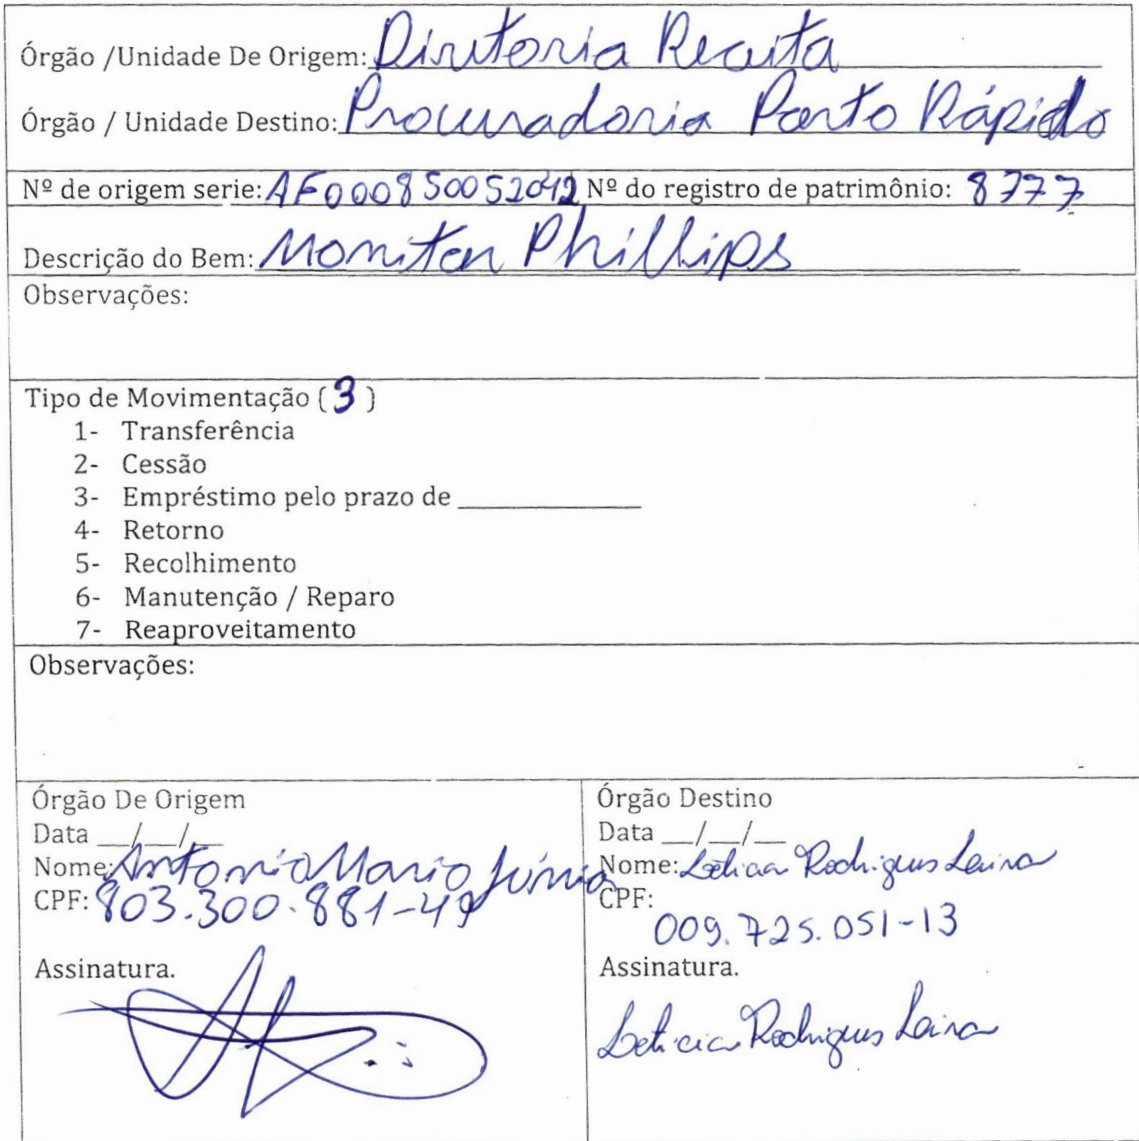 Órgão /Unidade De Origem: Diretoria Receita
Órgão / Unidade Destino: Procuradoria Ponto Rápido
Nº de origem serie: AF000850052042 Nº do registro de patrimônio: 8777
Descrição do Bem: Moniton Phillips
Observações:
Tipo de Movimentação ( 3 )
1- Transferência
2- Cessão
3- Empréstimo pelo prazo de ______________
4- Retorno
5- Recolhimento
6- Manutenção / Reparo
7- Reaproveitamento
Observações:
Órgão De Origem
Data __/__/__
Nome: Antonio Mario Júnio
CPF: 803.300.881-49
Assinatura.
Órgão Destino
Data __/__/__
Nome: Leticia Rodrigues
CPF:
009.725.051-13
Assinatura.
Leticia Rodrigues